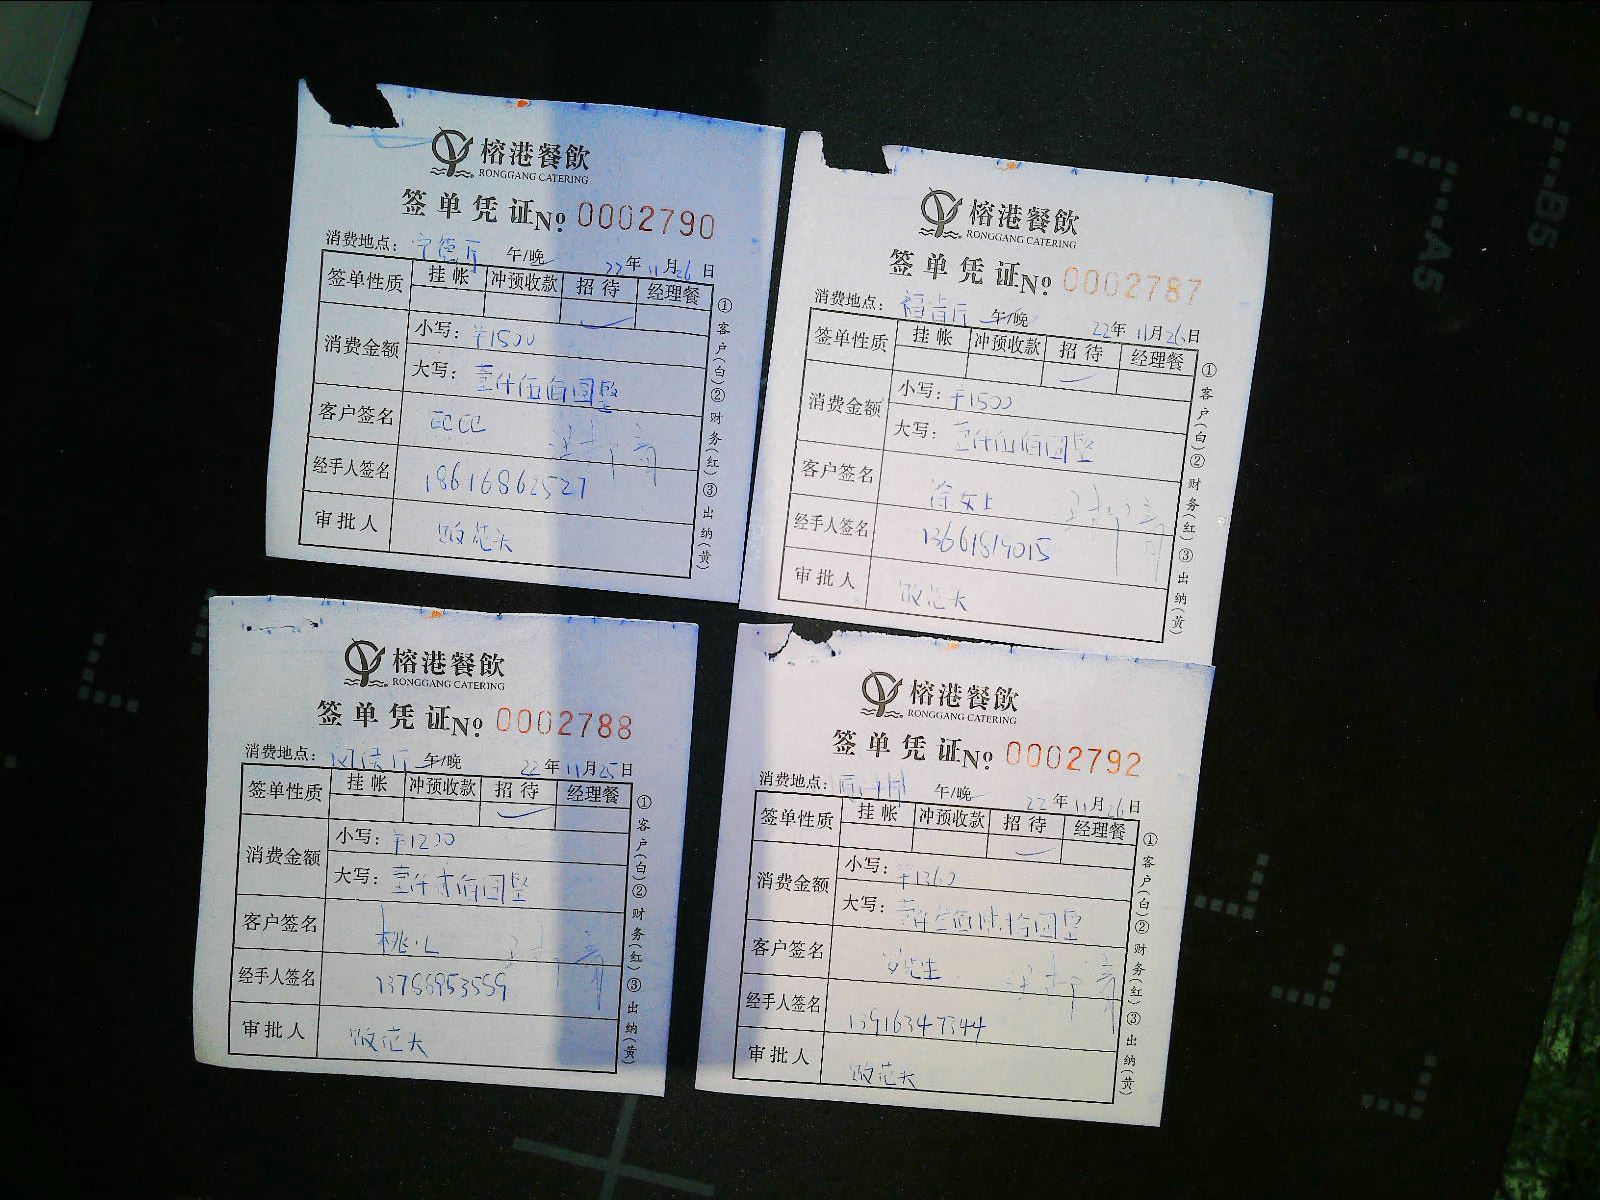 榕港餐飲
RONGGANG CATERING
签单凭证 No. 0002790
消费地点： 宁德厅 午/晚 22年11月26日
签单性质 挂帐 冲预收款 招待 经理餐
消费金额 小写：¥1500
大写：壹仟伍佰圆整
客户签名 ECEC
经手人签名 18616862527
审批人
①客户(白)②财务(红)③出纳(黄)
榕港餐飲
RONGGANG CATERING
签单凭证 No. 0002787
消费地点： 福清厅 午/晚 22年11月26日
签单性质 挂帐 冲预收款 招待 经理餐
消费金额 小写：¥1500
大写：壹仟伍佰圆整
客户签名 涂女士
经手人签名 13661519015
审批人
①客户(白)②财务(红)③出纳(黄)
榕港餐飲
RONGGANG CATERING
签单凭证 No. 0002788
消费地点： 闽侯厅 午/晚 22年11月25日
签单性质 挂帐 冲预收款 招待 经理餐
消费金额 小写：¥1200
大写：壹仟贰佰圆整
客户签名
经手人签名
审批人
①客户(白)②财务(红)③出纳(黄)
榕港餐飲
RONGGANG CATERING
签单凭证 No. 0002792
消费地点： 午/晚 22年11月26日
签单性质 挂帐 冲预收款 招待 经理餐
消费金额 小写：¥1360
大写：壹仟叁佰陆拾圆整
客户签名
经手人签名 13916347344
审批人
①客户(白)②财务(红)③出纳(黄)
A5
B5